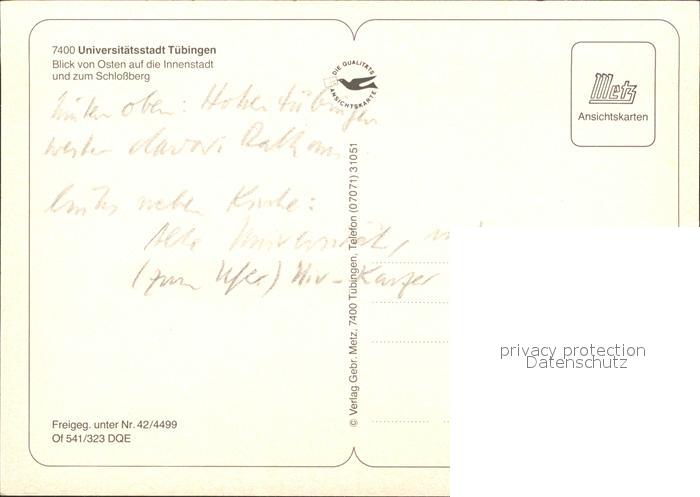 7400 Universitätsstadt Tübingen
Blick von Osten auf die Innenstadt
und zum Schloßberg
DIE QUALITÄTS
ANSICHTSKARTE
Metz
Ansichtskarten
oben: Hohentübingen
davor: Rathaus
links neben Kirche:
Alte Universität,
(zum Ufer) Univ-Karzer
© Verlag Gebr. Metz, 7400 Tübingen, Telefon (07071) 31051
privacy protection
Datenschutz
Freigeg. unter Nr. 42/4499
Of 541/323 DQE